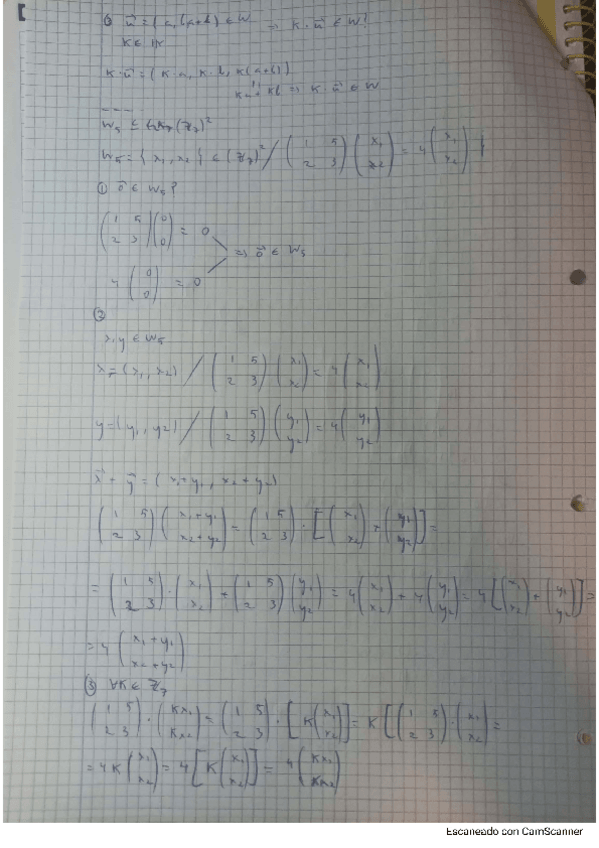 ③ ū = (a, b, a+b) ∈ W → K·ū ∈ W?
K ∈ ℝ
K·ū = (K·a, K·b, K(a+b))
Ka + Kb ⇒ K·ū ∈ W
W₅ ≤ (Z₇)²
W₅ = { x₁, x₂ } ∈ (Z₇)² / (1 5; 2 3) (x₁; x₂) = 4 (x₁; x₂) }
① ō ∈ W₅?
(1 5; 2 3) (0; 0) = 0
⇒ ō ∈ W₅
4 (0; 0) = 0
②
x, y ∈ W₅
x = (x₁, x₂) / (1 5; 2 3) (x₁; x₂) = 4 (x₁; x₂)
y = (y₁, y₂) / (1 5; 2 3) (y₁; y₂) = 4 (y₁; y₂)
x⃗ + y⃗ = (x₁+y₁, x₂+y₂)
(1 5; 2 3) (x₁+y₁; x₂+y₂) = (1 5; 2 3) · [(x₁; x₂) + (y₁; y₂)] =
= (1 5; 2 3) · (x₁; x₂) + (1 5; 2 3) (y₁; y₂) = 4 (x₁; x₂) + 4 (y₁; y₂) = 4 [(x₁; x₂) + (y₁; y₂)] =
= 4 (x₁+y₁; x₂+y₂)
③ ∀K ∈ Z₇
(1 5; 2 3) · (Kx₁; Kx₂) = (1 5; 2 3) · [K (x₁; x₂)] = K [(1 5; 2 3) · (x₁; x₂) =
= 4K (x₁; x₂) = 4 [K (x₁; x₂)] = 4 (Kx₁; Kx₂)
Escaneado con CamScanner